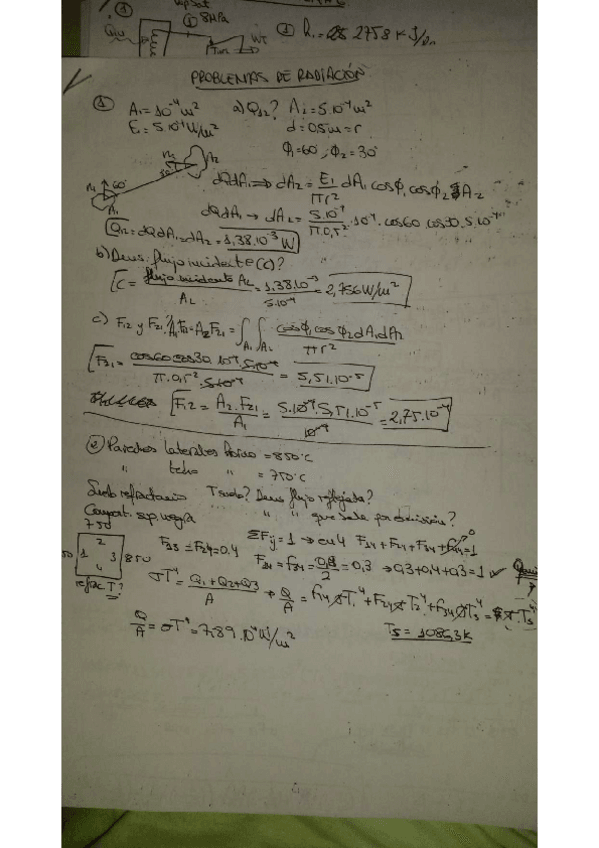 8MPa
WT
Tur
① h₁ = 2758 KJ/
PROBLEMAS DE RADIACIÓN
① A₁ = 10⁻⁴ m² a) Q₁₂? A₂ = 5.10⁻⁴ m²
E₁ = 5.10⁴ W/m² d = 0,5m = r
ϕ₁ = 60 ; ϕ₂ = 30
n₁ 60 A₁ n₂ 30 A₂
dQdA₁ → dA₂ = E₁/πr² dA₁ cosϕ₁ cosϕ₂ dA₂
dQdA₁ → dA₂ = 5.10⁴/π.0,5² . 10⁻⁴ . cos60 cos30 . 5.10⁻⁴
Q₁₂ = dQdA₁ → dA₂ = 1,38.10⁻³ W
b) Dens. flujo incidente (G)?
G = flujo incidente A₂/A₂ = 1,38.10⁻³/5.10⁻⁴ = 2,756 W/m²
c) F₁₂ y F₂₁? A₁F₁₂ = A₂F₂₁ = ∫A₁ ∫A₂ cosϕ₁ cosϕ₂ dA₁ dA₂/πr²
F₂₁ = cos60 cos30 . 10⁻⁴ . 5.10⁻⁴/π.0,5² . 5.10⁻⁴ = 5,51.10⁻⁵
F₁₂ = A₂.F₂₁/A₁ = 5.10⁻⁴ . 5,51.10⁻⁵/10⁻⁴ = 2,75.10⁻⁴
② Paredes laterales horno = 850°C
" techo " = 750°C
Suelo refractario T suelo? Dens flujo reflejada?
Comport. sup. negra " " " que sale por emisión?
750
1 2 3 4 850
refrac. T?
F₁₃ = F₂₄ = 0.4 ΣFij = 1 → en 4 F₁₄ + F₂₄ + F₃₄ + F₄₄ = 1
F₁₄ = F₃₄ = 0,6/2 = 0,3 → 0,3 + 0,4 + 0,3 = 1 ✓
σT⁴ = Q₁+Q₂+Q₃/A → Q/A = F₁₄σT₁⁴ + F₂₄σT₂⁴ + F₃₄σT₃⁴ = σ.Ts⁴
Q/A = σT⁴ = 7,89.10⁴ W/m² Ts = 1086,3 K